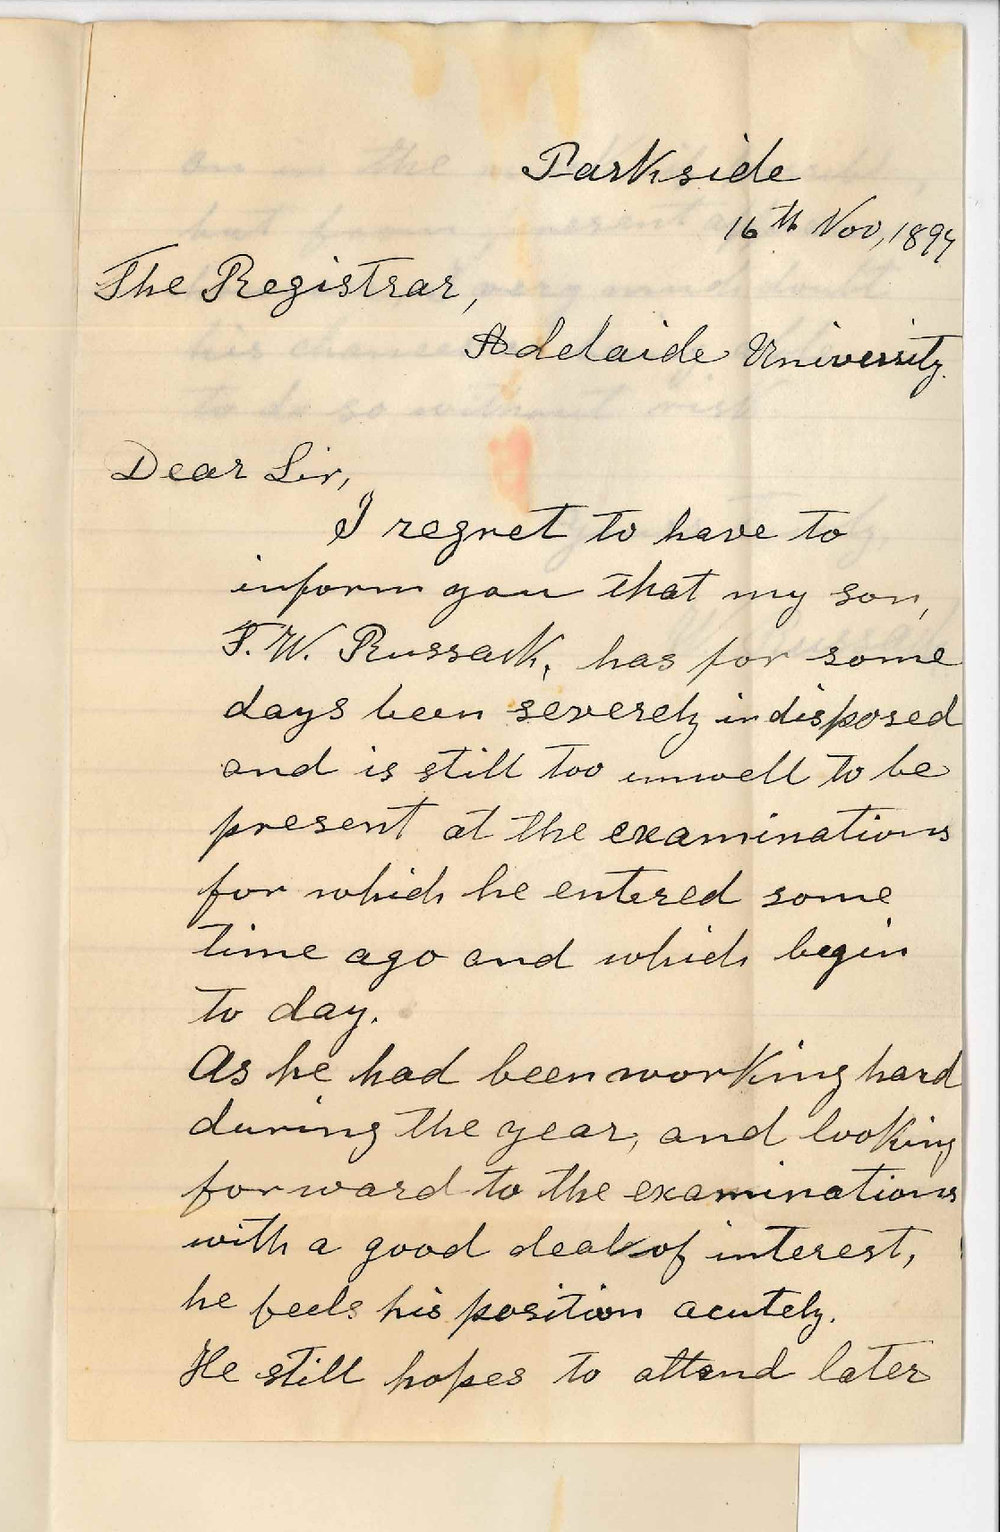 Parkside
16th Nov, 1897
The Registrar,
Adelaide University.
Dear Sir,
I regret to have to
inform you that my son,
F. W. Russack, has for some
days been severely indisposed
and is still too unwell to be
present at the examinations
for which he entered some
time ago and which begin
to day.
As he had been working hard
during the year, and looking
forward to the examinations
with a good deal of interest,
he feels his position acutely.
He still hopes to attend later